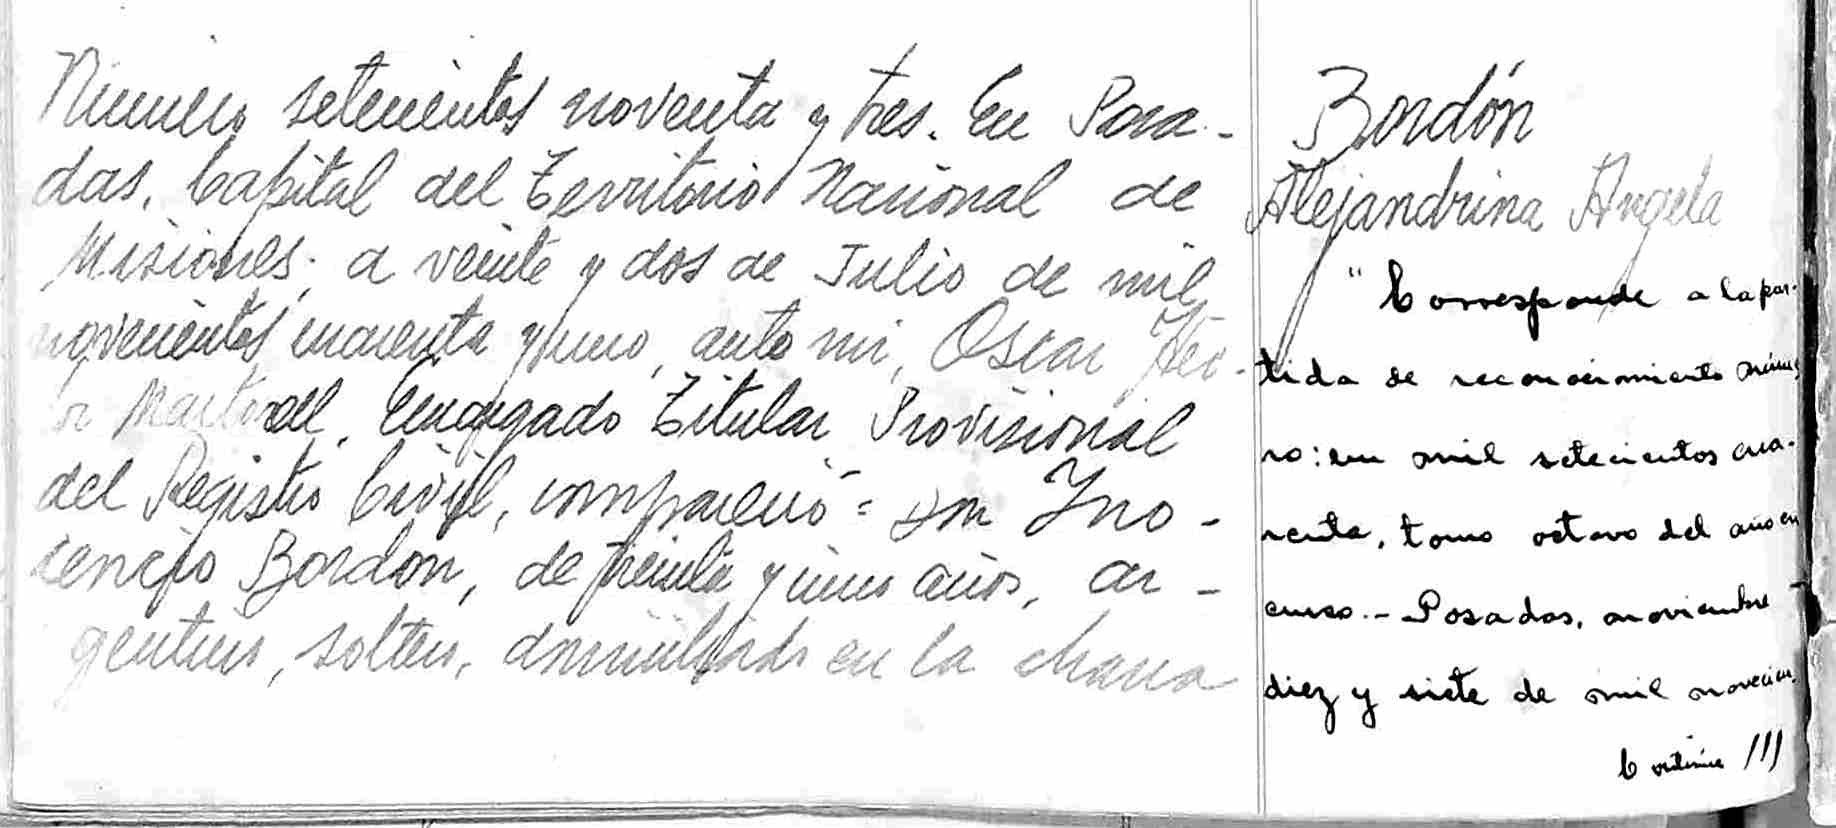 Número setecientos noventa y tres. En Posa-
das, Capital del Territorio Nacional de
Misiones, a veinte y dos de Julio de mil
novecientos cuarenta y uno, ante mi, Oscar Héc-
or Martorell, Encargado Titular Provisional
del Registro Civil, compareció = Don Ino-
cencio Bordon, de treinta y un años, ar-
gentino, soltero, domiciliado en la chacra
Bordón
Alejandrina Angela
"Corresponde a la par-
tida de reconocimiento núme
ro: un mil setecientos cua-
renta, tomo octavo del año en
curso.- Posadas, noviembre
diez y siete de mil novecien.
Continúa ///